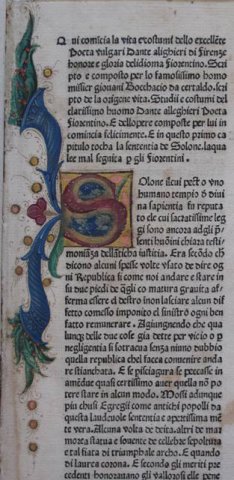 Qui comĩcia la vita e costumi dello excellẽte
Poeta vulgari Dante alighieri di Firenze
honore e gloria delidioma Fiorentino. Scri
pto e composto per lo famosissimo homo
missier giouani Bocchacio da certaldo. scri
pto de la origene vita. Studii e costumi del
clarissimo huomo Dante alleghieri Poeta
Fiorentino. E dellopere composte per lui in
comincia felicimente. E in questo primo ca
pitulo tocha la sententia de Solone. laqua
le mal seguita p gli Fiorentini.
SOlone ilcui pecto vno
humano tempio di diui
na sapientia fu reputa
to e le cui sacratissime leg
gi sono ancora adgli p̃
senti huoĩni chiara testi
monĩaza dellãticha iustitia. Era secõdo ch̃
dicono alcuni spesse volte vsato de dire og
ni Republica si come noi andare e stare in
su due piedi de q̃li co matura grauita af
ferma essere il destro inon lasciare alcun dif
fetto comesso imponito el sinistro ogni ben
facto remunerare. Agiungendo che qua
lunq̃ delle due cose gia dette per vicio o p
negligentia si sotracua senza niuno dubbio
quella republica chel facea conuenire anda
re sciancata. E se p̃ sciagura se peccasse in
amẽdue quasi certissimo auer quella nõ po
tere stare in alcun modo. Mossi adunque
piu chusi Egregii come antichi popoli da
questa laudeuole sententia e apertissima mẽ
te vera. Alcuna volta de deita. altri de mar
morea statua e souente de cellebre sepoltura
e tal fiata di triumphale archo. E quando
di laurea corona. E secondo gli meriti pre
cedenti honorauano gli valorosi elle pene